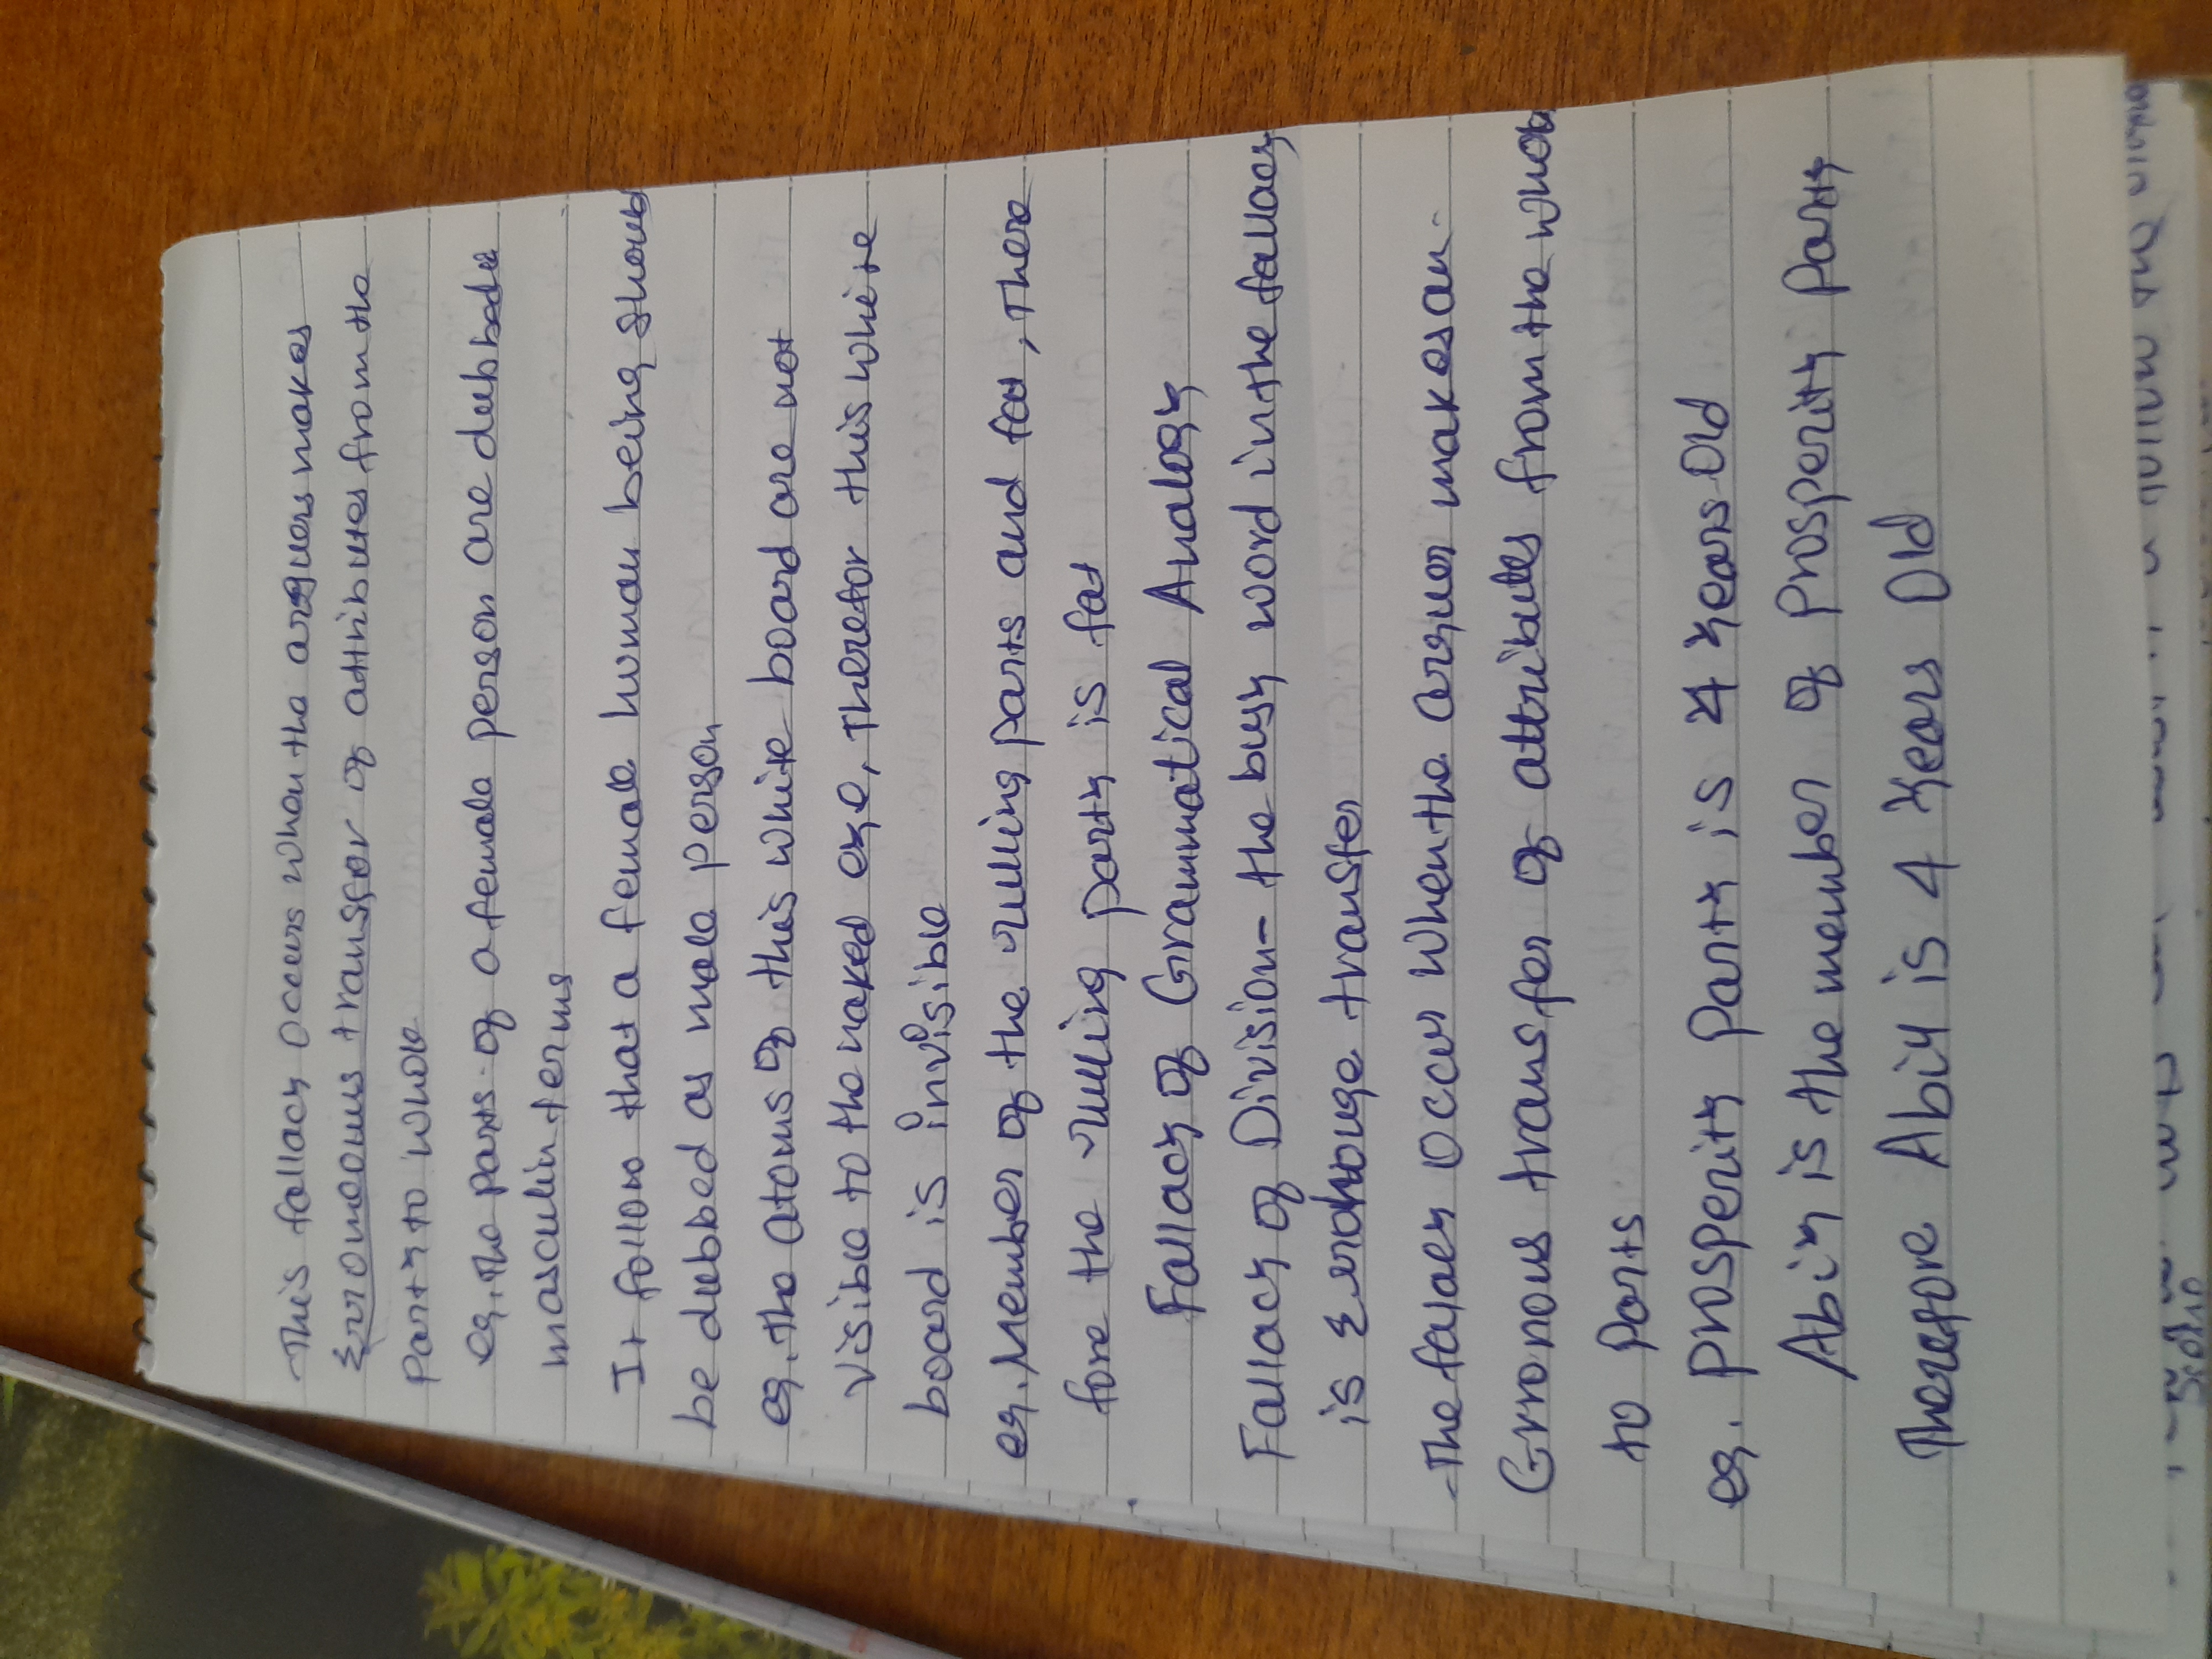 This fallacy occurs when the arguers makes
Erromeonus transfer of attributes from the
Party to whole
eg. The parts of a female person are dubbed
masculin terms
It follow that a female human being should
be dubbed as male person
eg. The atoms of this white board are not
visible to the naked eye, Therefor this white
board is invisible
eg. Member of the rulling parts and fat, There
fore the rulling party is fat
Fallacy of Grammatical Analogy
Fallacy of Division- the busy word in the fallacy
is transfer
-The falacy occur When the arguer makes an-
Erronous transfer of attributes from the whole
to Parts
eg. Prosperity Party is 4 years Old
Abiy is the member of Prosperity Party
Therefore Abiy is 4 Years Old